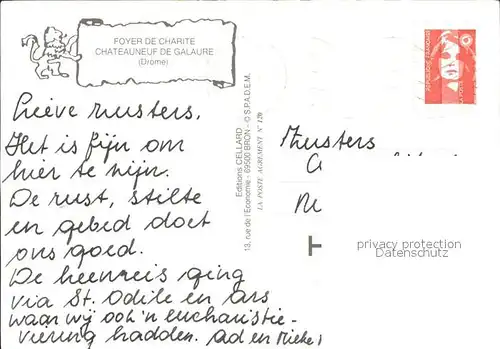 FOYER DE CHARITE
CHATEAUNEUF DE GALAURE
(Drôme)
Lieve zusters,
Het is fijn om
hier te zijn.
De rust, stilte
en gebed doet
ons goed.
De heenreis ging
via St. Odile en Ars
waar wij ook 'n eucharistie-
viering hadden. Ad en Mieke
Editions CELLARD
13, rue de l'Economie - 69500 BRON - O.S.P.A.D.E.M.
LA POSTE AGREMENT N° 120
REPUBLIQUE FRANÇAISE
Zusters
privacy protection
Datenschutz